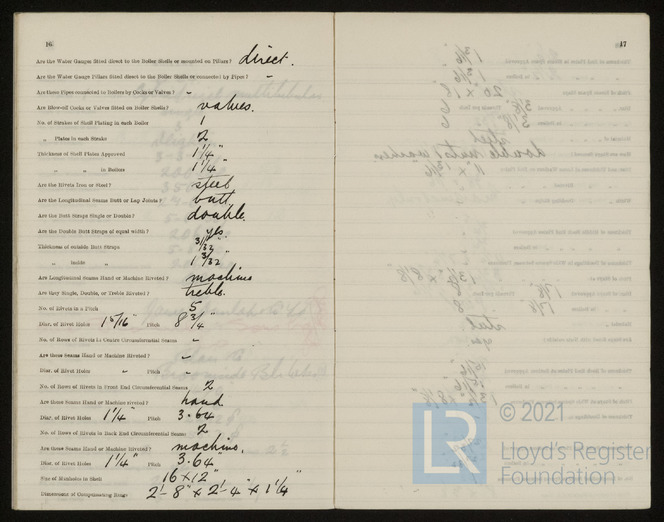 16
Are the Water Gauges fitted direct to the Boiler Shells or mounted on Pillars? direct.
Are the Water Gauge Pillars fitted direct to the Boiler Shells or connected by Pipes? "
Are these Pipes connected to Boilers by Cocks or Valves? "
Are Blow-off Cocks or Valves fitted on Boiler Shells? valves.
No. of Strakes of Shell Plating in each Boiler 1
" Plates in each Strake 2
Thickness of Shell Plates Approved 1 1/4"
" " " in Boilers 1 1/4"
Are the Rivets Iron or Steel? steel
Are the Longitudinal Seams Butt or Lap Joints? butt
Are the Butt Straps Single or Double? double
Are the Double Butt Straps of equal width? yes.
Thickness of outside Butt Straps
" inside " 1 3/32"
Are Longitudinal Seams Hand or Machine Riveted? machine
Are they Single, Double, or Treble Riveted? treble.
No. of Rivets in a Pitch 5
Diar. of Rivet Holes Pitch 8 3/4"
No. of Rows of Rivets in Centre Circumferential Seams "
Are these Seams Hand or Machine Riveted? "
Diar. of Rivet Holes " Pitch "
No. of Rows of Rivets in Front End Circumferential Seams 2
Are these Seams Hand or Machine riveted? hand
Diar. of Rivet Holes 1 1/4" Pitch 3.64
No. of Rows of Rivets in Back End Circumferential Seams 2
Are these Seams Hand or Machine Riveted? machine.
Diar. of Rivet Holes 1 1/4" Pitch 3.64"
Size of Manholes in Shell 16 x 12"
Dimensions of Compensating Rings 2'-8" x 2'-4" x 1 1/4"
17
© 2021
LR
Lloyd's Register
Foundation